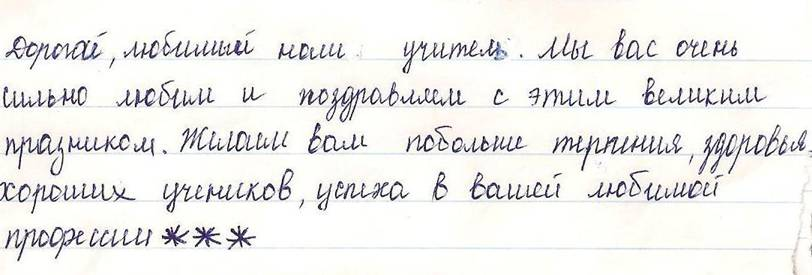 Дорогой, любимый наш учитель. Мы вас очень
сильно любим и поздравляем с этим великим
празником. Желаем вам побольше терпения, здоровья,
хороших учеников, успеха в вашей любимой
профессии ***